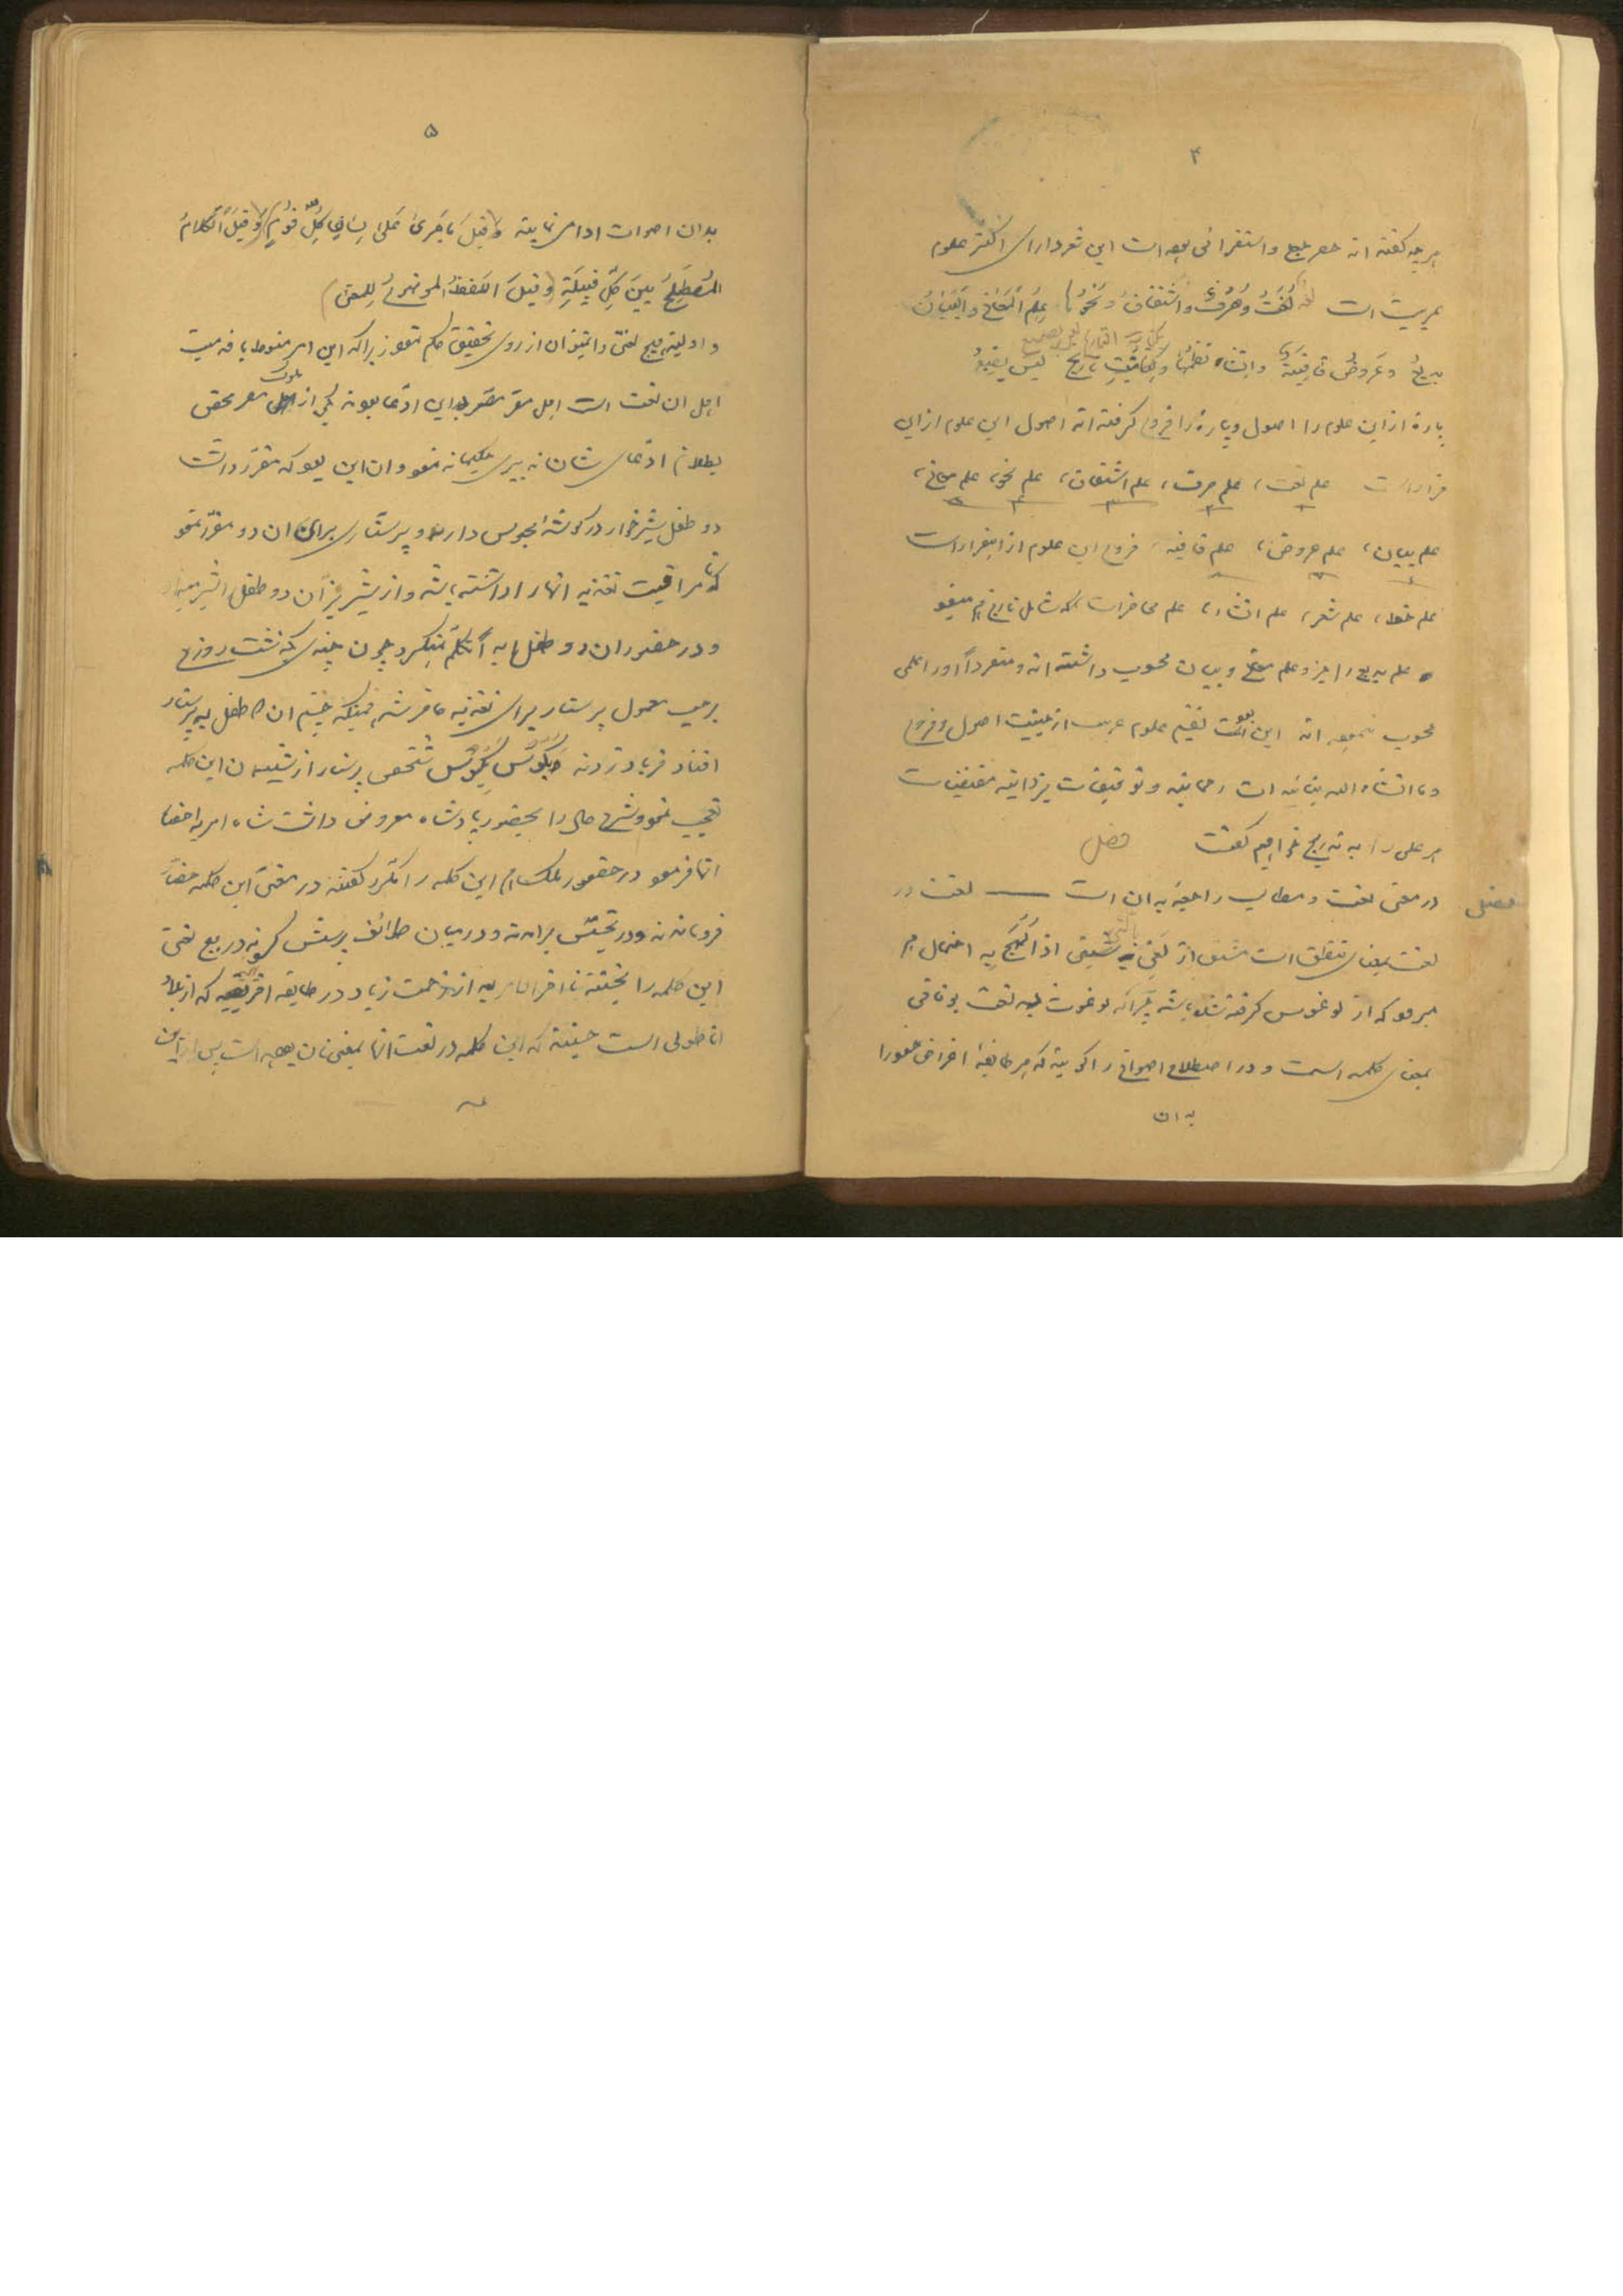 ۴
هر چه گفته اند حصر جمع و استقرائی بوده است این شعر دارای اکثر علوم
عربیت است لُغَتٌ وَصَرْفٌ واشتقاقٌ وَنَحْوُها عِلْمُ المَعانی والبَیانِ
بدیعٌ وعَروضٌ قافیةٌ وانشاء نظمُها وکتابةٌ تاریخ لیس یضیعُ
پارهٔ از این علوم را اصول و پارهٔ را فروع گرفته اند اصول این علوم از این
قرار است علم لغت، علم صرف، علم اشتقاق، علم نحو، علم معانی،
علم بیان، علم عروض، علم قافیه، فروع این علوم از اینقرار است
علم خط، علم شعر، علم انشاء، علم محاضرات که شامل تاریخ هم میشود
علم بدیع را جزو علم معانی و بیان محسوب داشته اند و منفرداً او را علمی
محسوب ننموده اند این بود تقسیم علوم عربیت از حیثیت اصول و فروع
و ما انشاء الله بتأئیدات رحمانیه و توفیقات یزدانیه مقتضیات
هر علمی را به تدریج خواهیم گفت فصل
فصل در معنی لغت و مطالب راجعهٔ به ان است لغت در
لغت بمعنای تنطق است مشتق از لَغِیَ بالشیء اذا لَهِجَ به احتمال هم
میرود که از لوغوس گرفته شده باشد چرا که لوغوث به لغت یونانی
بمعنای کلمه است و در اصطلاح اصواتی را گویند که هر طایفهٔ اغراض خود را
به ان
۵
بدان اصوات ادا می نمایند وقیلَ ماجَری عَلی لِسانِ کُلِّ قومٍ وقیلَ الکلامُ
المُصْطَلِحُ بینَ کلِّ قبیلَةٍ وقیلَ اللَّفظُ الموضوعُ لِلمعنی
و اولیت هیچ لغتی را نمیتوان از روی تحقیق حکم نمود زیرا که این امر منوط با قدمیت
اهل ان لغت است اهل مصر مصر به این ادعا بودند یکی از ملوک مصر محض
بطلان ادعای شان تدبیری حکیمانه نمود و ان این بود که مقرر داشت
دو طفل شیرخوار در گوشهٔ محبوس دارند و پرستاری برای ان دو مقرر نمود
که تا مراقبت تغذیه انها را داشته باشد و از شیر بز آن دو طفل را شیر میداد
و در حضور ان دو طفل ابداً تکلم نمیکرد چون چندی بگذشت روزی
برحسب معمول پرستار برای تغذیه حاضر شد همینکه چشم ان دو طفل به پرستار
افتاد فریاد زدند بکوس بکوس شخص پرستار از شنیدن این کلمه
تعجب نمود و شرح حال را بحضور پادشاه معروض داشت شاه امر به احضار
انها فرمود در حضور ملک هم این کلمه را مکرر گفتند در معنی این کلمه حضار
فروماندند و در تجسس برامدند و در میان طوائف پرسش کردند در بیع لغتی
این کلمه را نجستند تا اخرالامر بعد از زحمت زیاد در طایفه افریقیه که از بلاد
اناطولی است جستند که این کلمه در لغت انها بمعنی نان بوده است پس از این